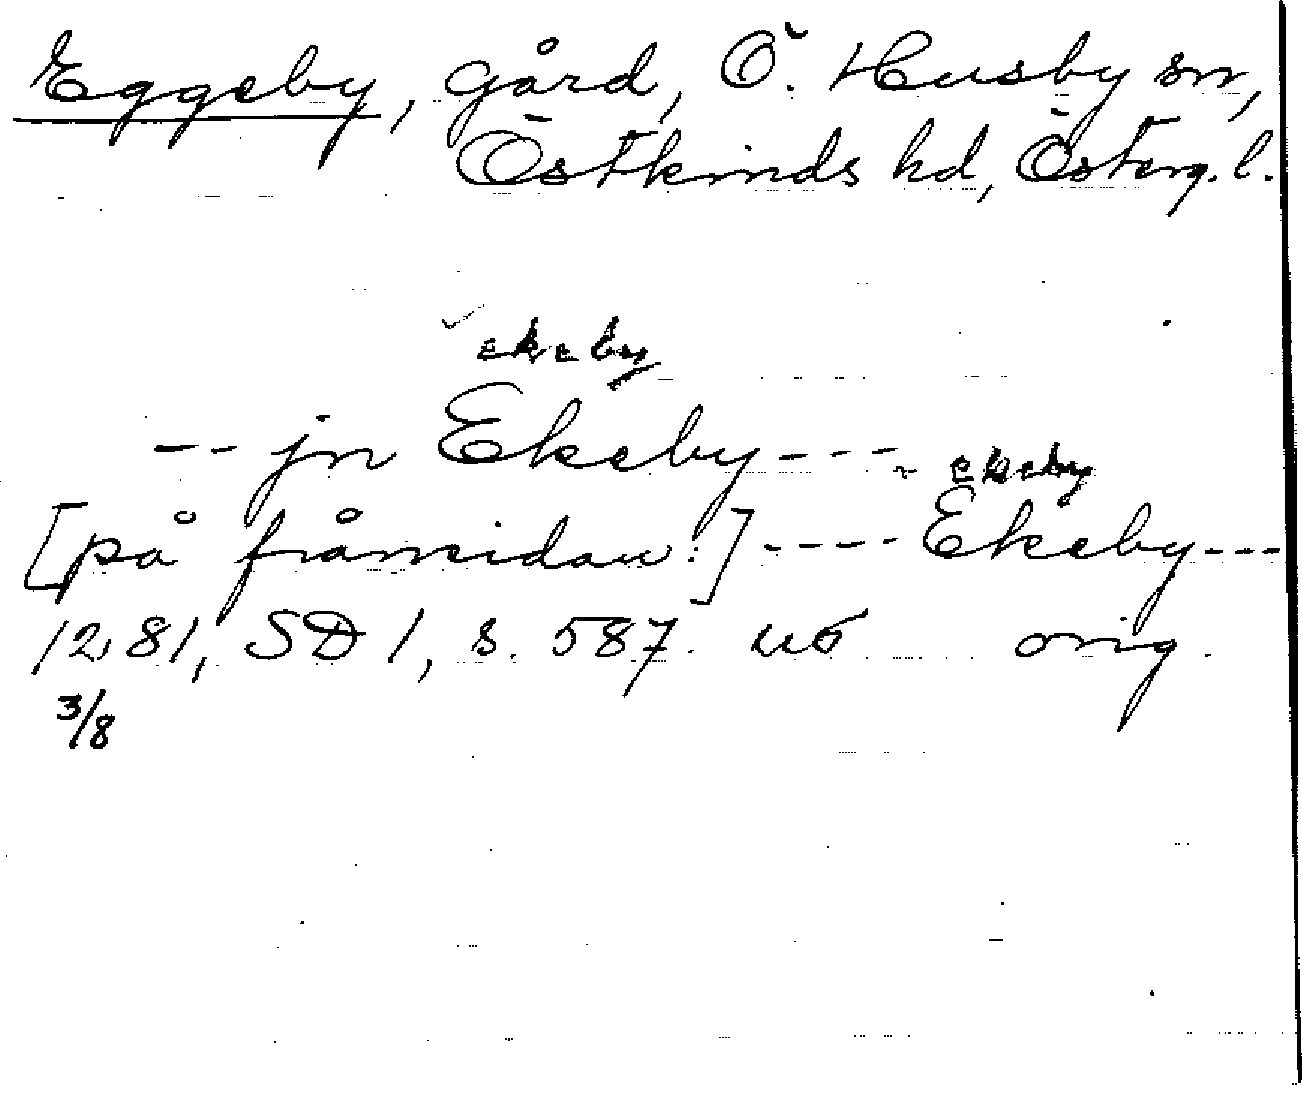 Eggeby, gård, Ö. Husby sn,
Östkinds hd, Österg. l.
ekeby
-- jn Ekeby ----
ekeby
[på fråmsidan:] ---- Ekeby ---
1281, SD 1, s. 587. orig.
3/8